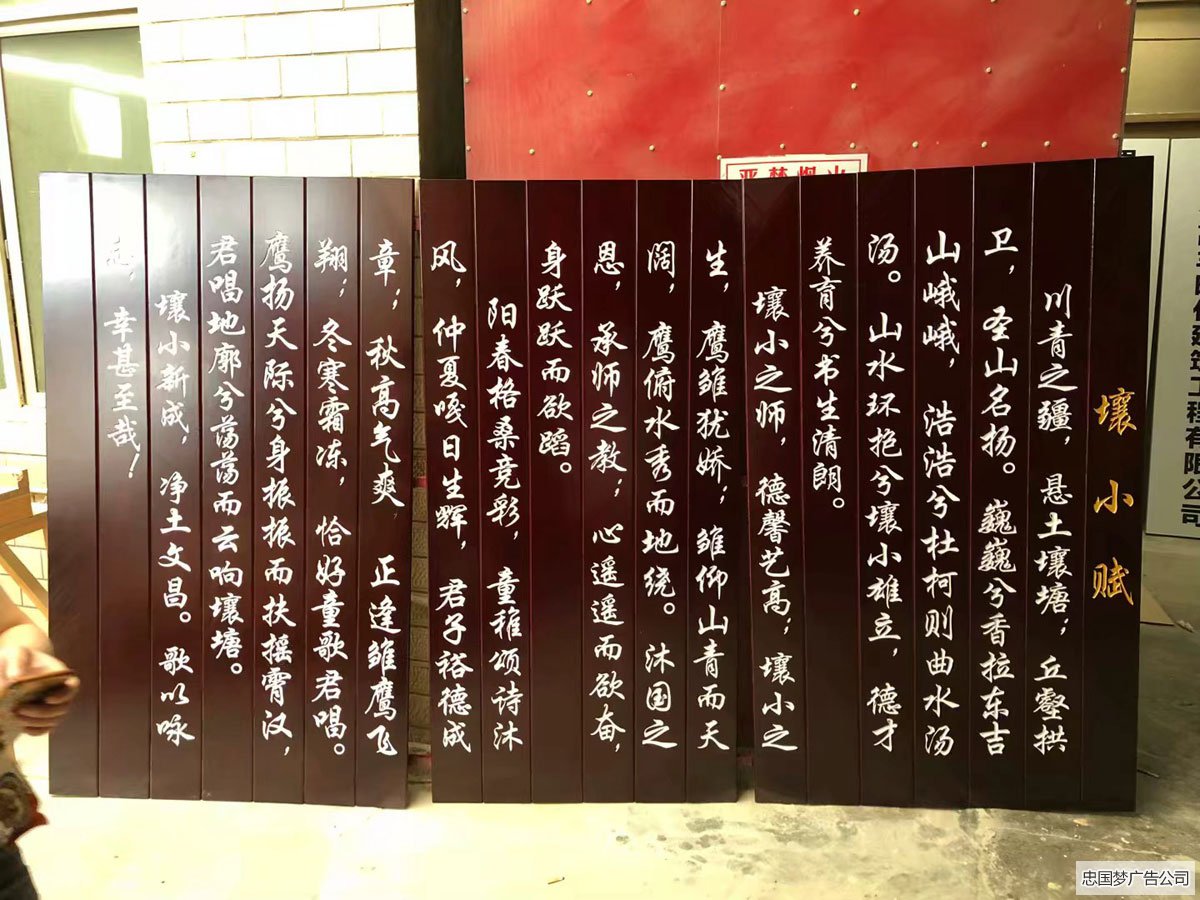 壤小赋
川青之疆，悬土壤塘；丘壑拱
卫，圣山名扬。巍巍兮香拉东吉
山峨峨，浩浩兮杜柯则曲水汤
汤。山水环抱兮壤小雄立，德才
养育兮书生清朗。
壤小之师，德馨艺高；壤小之
生，鹰雏犹娇；雏仰山青而天
阔，鹰俯水秀而地绕。沐国之
恩，承师之教；心遥遥而欲奋，
身跃跃而欲蹈。
阳春格桑竞彩，童稚颂诗沐
风，仲夏嘎日生辉，君子裕德成
章；秋高气爽 正逢雏鹰飞
翔；冬寒霜冻，恰好童歌君唱。
鹰扬天际兮身振振而扶摇霄汉，
君唱地廓兮荡荡而云响壤塘。
壤小新成，净土文昌。歌以咏
志，幸甚至哉！
严禁烟火
工程有限公司
忠国梦广告公司